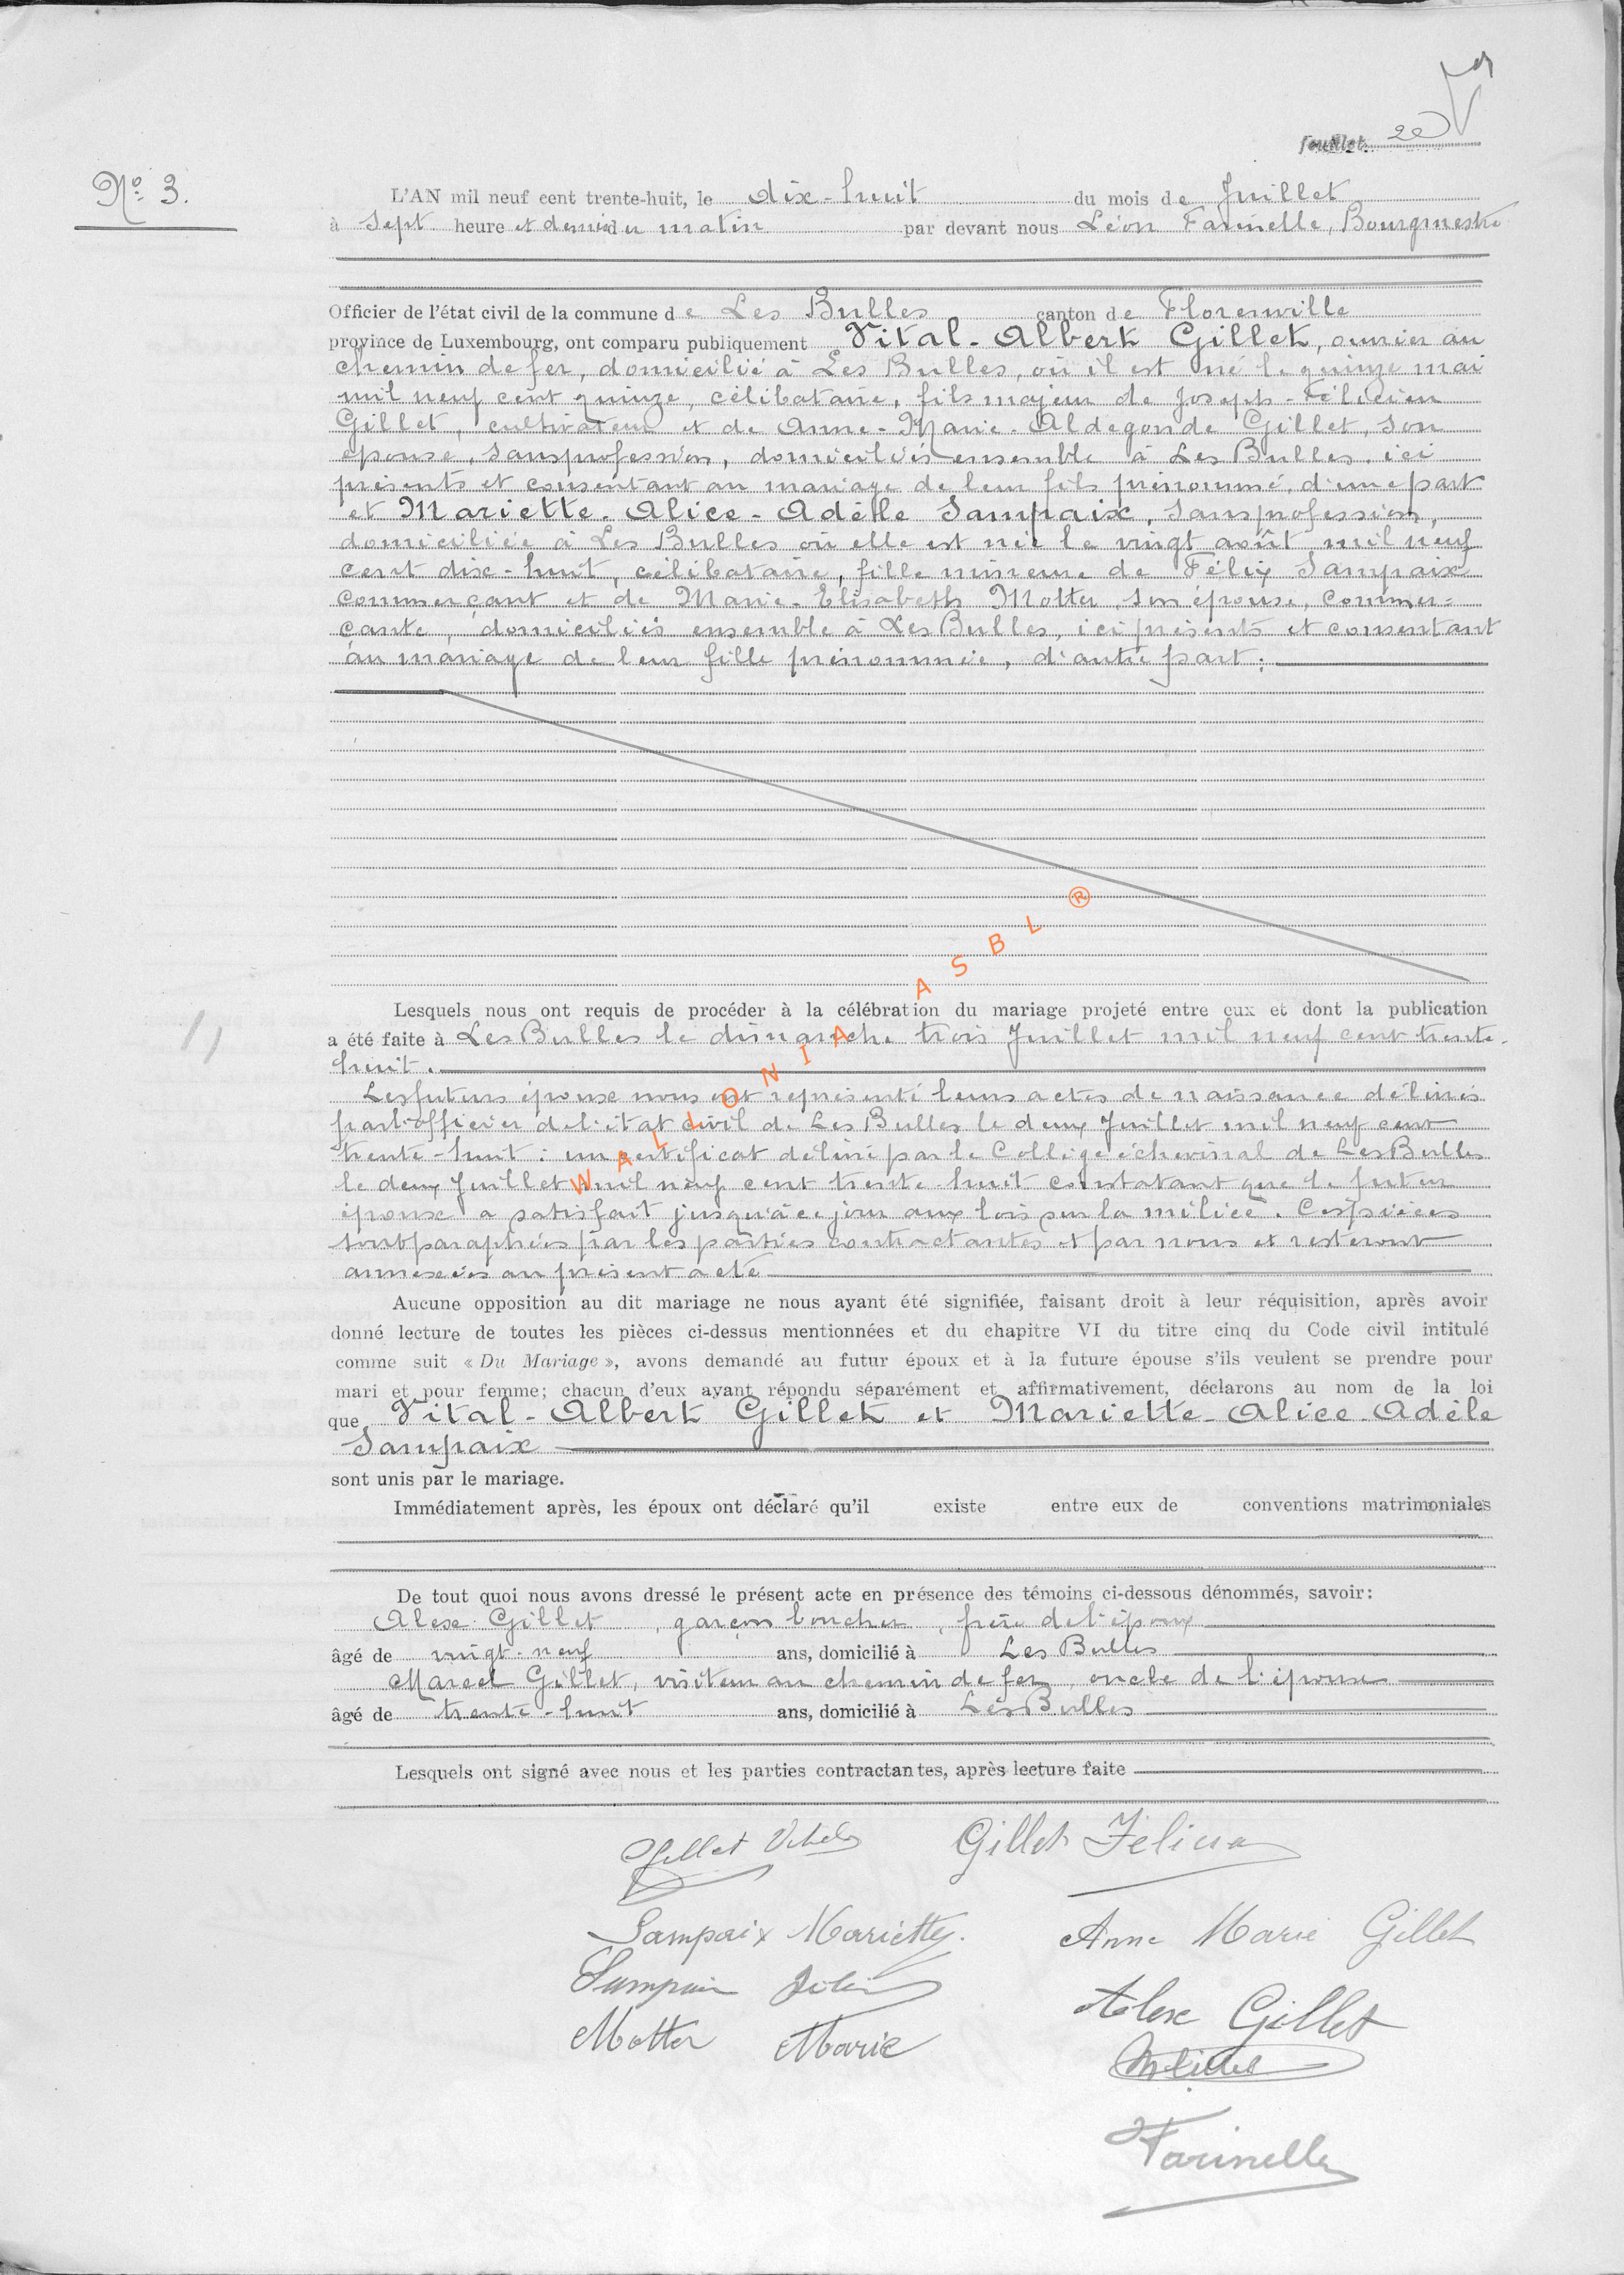 feuillet 2e
Nº 3.
L'AN mil neuf cent trente-huit, le dix-huit du mois de Juillet
à Sept heure et demie du matin par devant nous Léon Farinelle, Bourgmestre
Officier de l'état civil de la commune de Les Bulles canton de Florenville
province de Luxembourg, ont comparu publiquement Vital-Albert Gillet, ouvrier au
chemin de fer, domicilié à Les Bulles, où il est né le quinze mai
mil neuf cent quinze, célibataire, fils majeur de Joseph-Félicien
Gillet, cultivateur et de Anne-Marie-Aldegonde Gillet, son
épouse, sans profession, domiciliés ensemble à Les Bulles, ici
présents et consentant au mariage de leur fils prénommé, d'une part
et Mariette-Alice-Adèle Sampaix, sans profession,
domiciliée à Les Bulles où elle est née le vingt août mil neuf
cent dix-huit, célibataire, fille mineure de Félix Sampaix
commerçant et de Marie-Elisabeth Motter, son épouse, commer-
çante, domiciliés ensemble à Les Bulles, ici présents et consentant
au mariage de leur fille prénommée, d'autre part;
Lesquels nous ont requis de procéder à la célébration du mariage projeté entre eux et dont la publication
a été faite à Les Bulles le dimanche trois Juillet mil neuf cent trente-
huit.
Les futurs époux nous ont représenté leurs actes de naissance délivrés
par l'officier de l'état civil de Les Bulles le deux Juillet mil neuf cent
trente-huit: un certificat délivré par le Collège échevinal de Les Bulles
le deux Juillet mil neuf cent trente-huit constatant que le futur
époux a satisfait jusqu'à ce jour aux lois sur la milice. Ces pièces
sont paraphées par les parties contractantes et par nous et resteront
annexées au présent acte
Aucune opposition au dit mariage ne nous ayant été signifiée, faisant droit à leur réquisition, après avoir
donné lecture de toutes les pièces ci-dessus mentionnées et du chapitre VI du titre cinq du Code civil intitulé
comme suit « Du Mariage », avons demandé au futur époux et à la future épouse s'ils veulent se prendre pour
mari et pour femme; chacun d'eux ayant répondu séparément et affirmativement, déclarons au nom de la loi
que Vital-Albert Gillet et Mariette-Alice-Adèle
Sampaix
sont unis par le mariage.
Immédiatement après, les époux ont déclaré qu'il existe entre eux de conventions matrimoniales
De tout quoi nous avons dressé le présent acte en présence des témoins ci-dessous dénommés, savoir:
Alex Gillet, garçon boucher, frère de l'époux
âgé de vingt-neuf ans, domicilié à Les Bulles
Marcel Gillet, visiteur au chemin de fer, oncle de l'époux
âgé de trente-huit ans, domicilié à Les Bulles
Lesquels ont signé avec nous et les parties contractantes, après lecture faite
Gillet Vital Gillet Félicien
Sampaix Mariette Anne Marie Gillet
Sampaix Félix
Alex Gillet
Motter Marie
Farinelle
WALLONIA ASBL ®